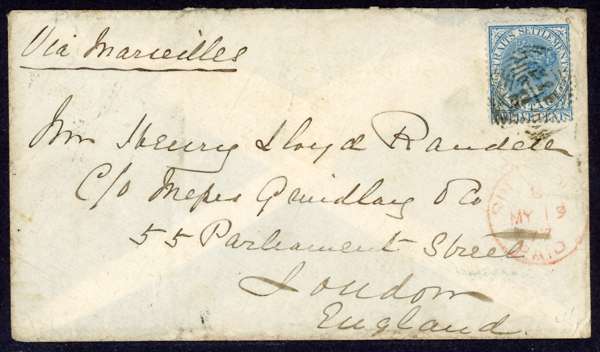 Via Marseilles
STRAITS SETTLEMENTS
Wm Henry Lloyd Randell
C/o Messrs Grindlay & Co
55 Parliament Street
London
England
MY 19
PAID